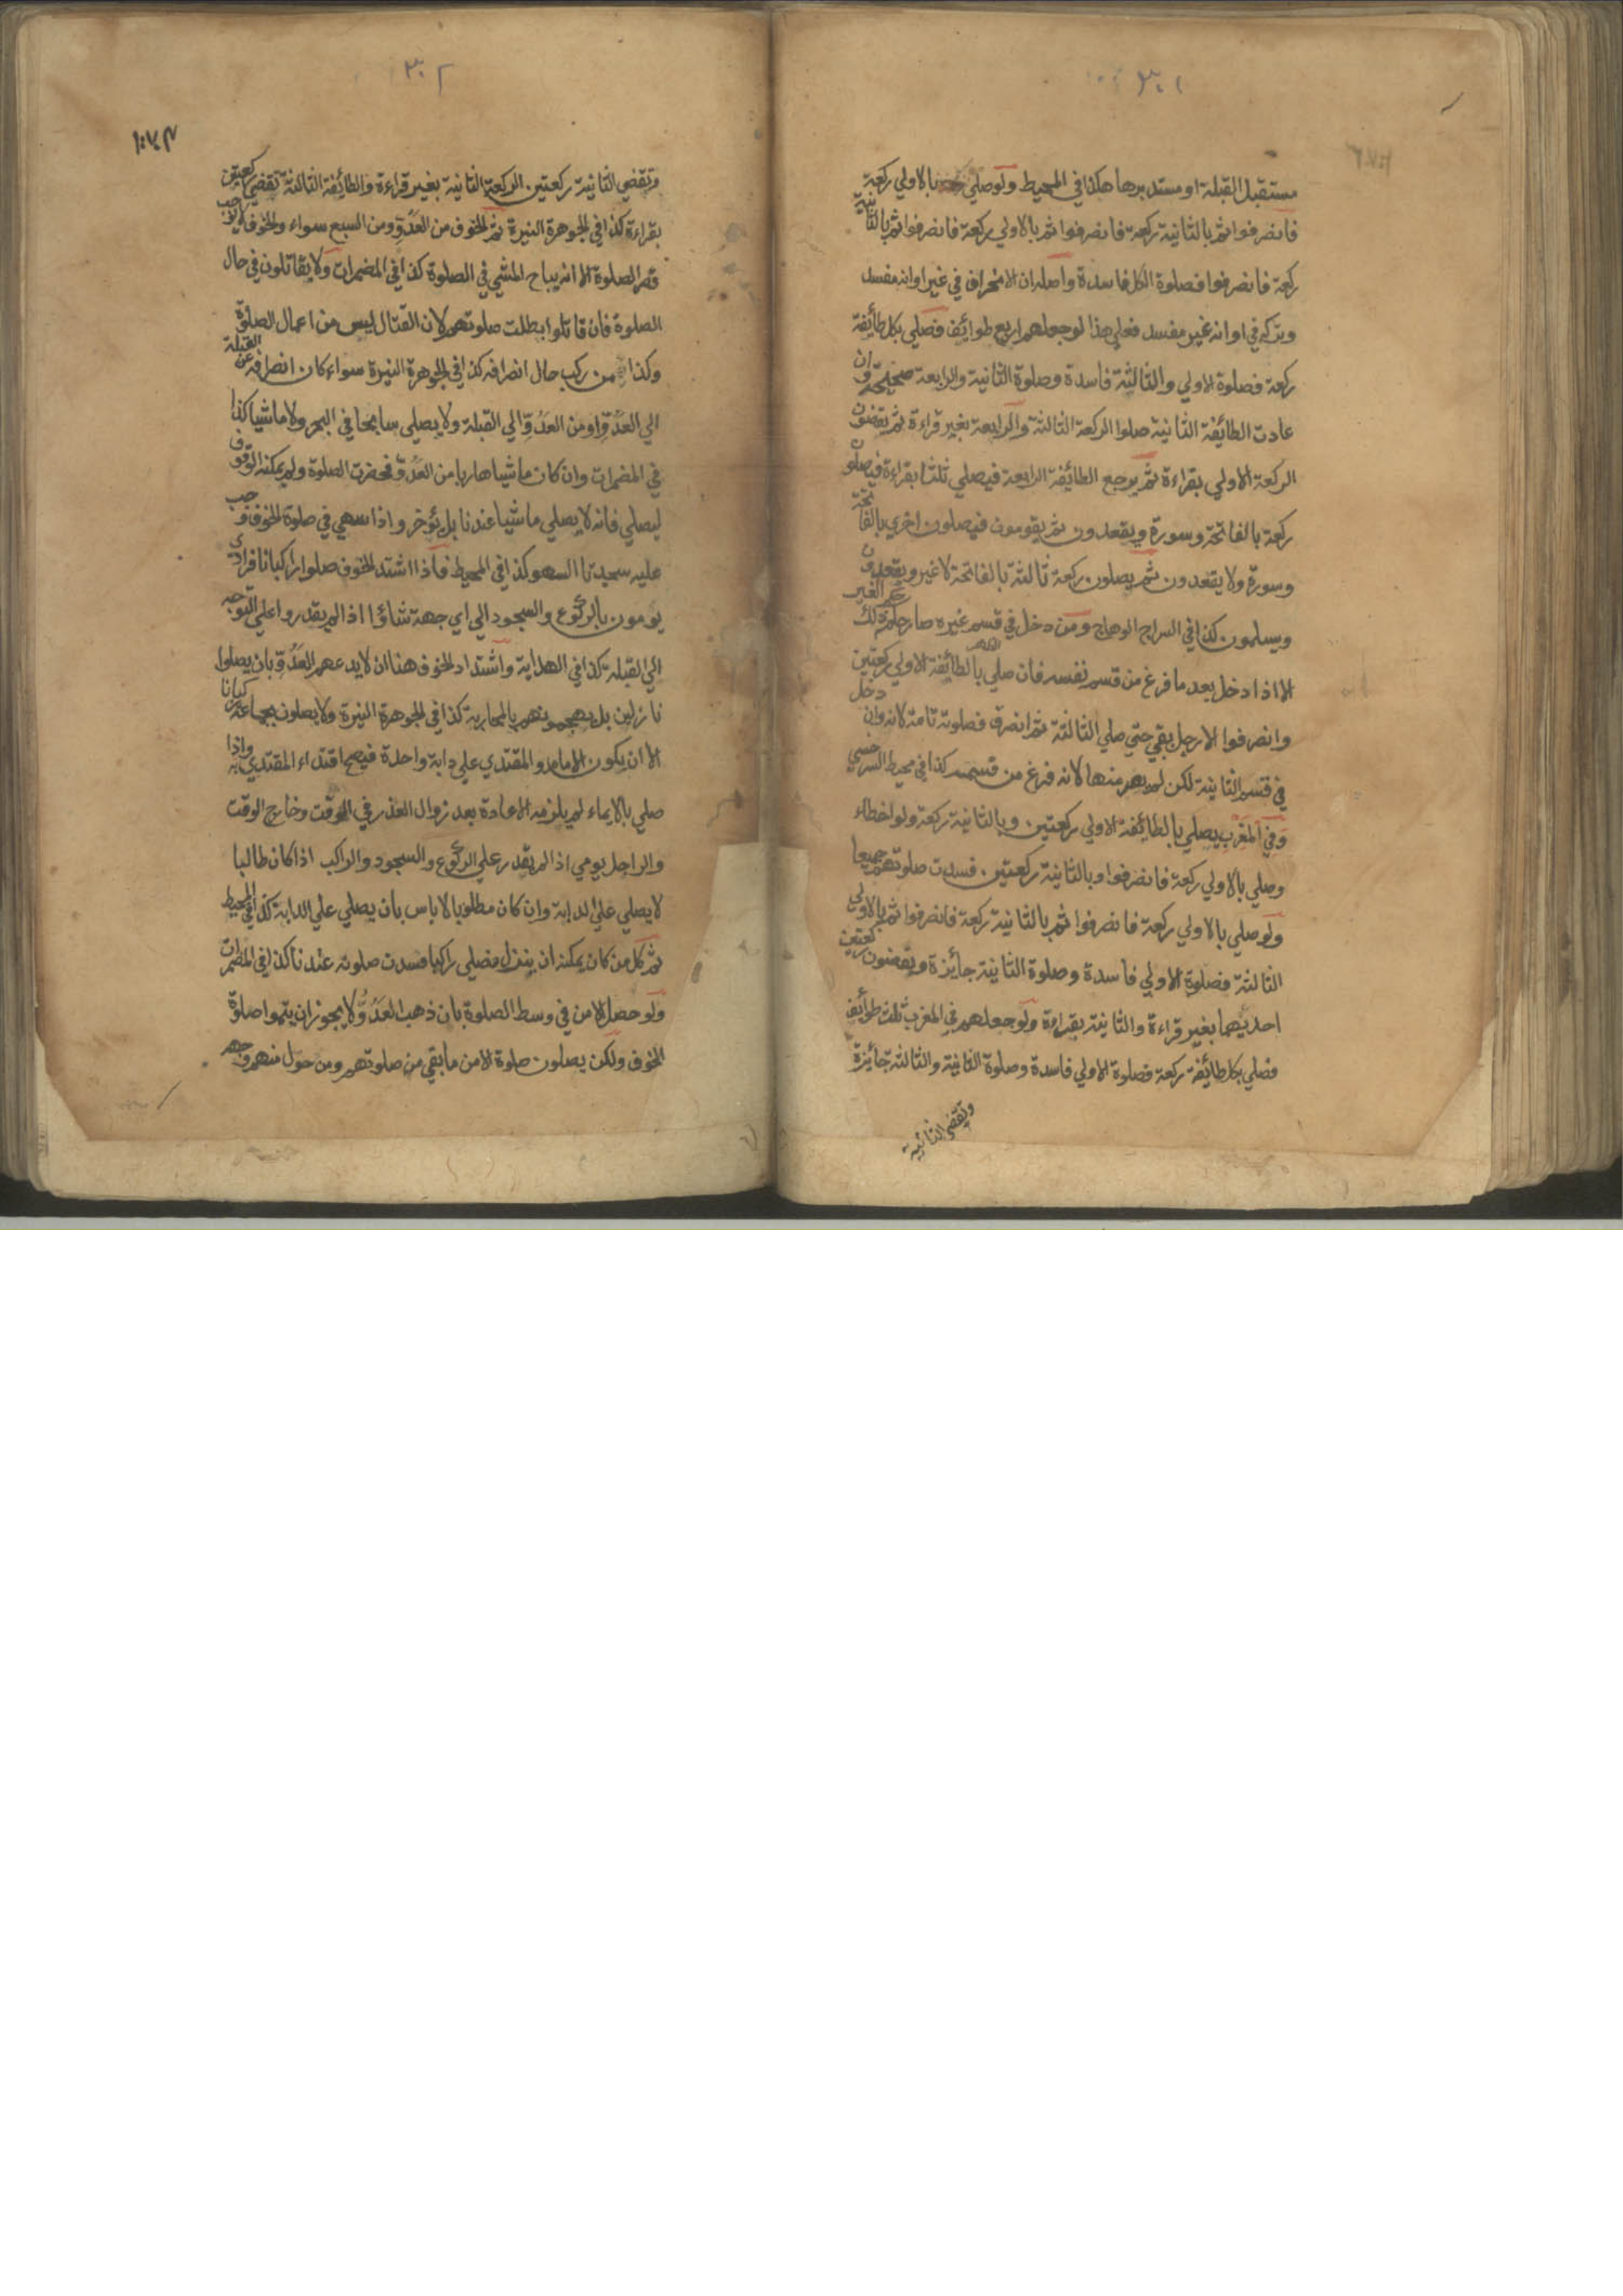 ٣٠١
مستقبل القبلة او مستدبرها هكذا في المحيط ولو صلي بالاولي ركعة
فانصرفوا ثم بالثانية ركعة فانصرفوا ثم بالاولي ركعة فانصرفوا ثم بالثانية
ركعة فانصرفوا فصلوة الكل فاسدة واصله ان الانحراف في غير اوانه مفسد
وتركه في اوانه غير مفسد فعلي هذا لو جعلهم اربع طوائف فصلي بكل طائفة
ركعة فصلوة الاولي والثالثة فاسدة وصلوة الثانية والرابعة صحيحة وان
عادت الطائفة الثانية صلوا الركعة الثالثة والرابعة بغير قراءة ثم يقضون
الركعة الاولي بقراءة ثم يرجع الطائفة الرابعة فيصلي ثلثا بقراءة فيصلون
ركعة بالفاتحة وسورة ويقعدون ثم يقومون فيصلون اخري بالفاتحة
وسورة ولا يقعدون ثم يصلون ركعة ثالثة بالفاتحة لا غير ويقعدون
ويسلمون كذا في السراج الوهاج ومن دخل في قسم غيره صار حكمه حكم ذلك الغير
الا اذا دخل بعد ما فرغ من قسم نفسه فان صلي الظهر بالطائفة الاولي ركعتين
وانصرفوا الا رجل بقي حتي صلي الثالثة ثم انصرف فصلوته تامة لانه وان دخل
في قسم الثانية لكن لم يصر منها لانه فرغ من قسمه كذا في محيط السرخسي
وفي المغرب يصلي بالطائفة الاولي ركعتين وبالثانية ركعة ولو اخطاء
وصلي بالاولي ركعة فانصرفوا وبالثانية ركعتين فسدت صلوتهم جميعا
ولو صلي بالاولي ركعة فانصرفوا ثم بالثانية ركعة فانصرفوا ثم بالاولي
الثالثة فصلوة الاولي فاسدة وصلوة الثانية جائزة ويقضون ركعتين
احديهما بغير قراءة والثانية بقراءة ولو جعلهم في المغرب ثلث طوائف
فصلي بكل طائفة ركعة فصلوة الاولي فاسدة وصلوة الثانية والثالثة جائزة
وتقضي الثانية
٣٠٢
وتقضي الثانية ركعتين الركعة الثانية بغير قراءة والطائفة الثالثة تقضي ركعتين
بقراءة كذا في الجوهرة النيرة ثم الخوف من العدوّ ومن السبع سواء والخوف لا يوجب
قصر الصلوة الا انه يباح المشي في الصلوة كذا في المضمرات ولا يقاتلون في حال
الصلوة فان قاتلوا بطلت صلوتهم لان القتال ليس من اعمال الصلوة
وكذا من ركب حال انصرافه كذا في الجوهرة النيرة سواء كان انصرافه عن القبلة
الي العدوّ او من العدوّ الي القبلة ولا يصلي سابحا في البحر ولا ماشيا كذا
في المضمرات وان كان ماشيا هاربا من العدوّ فحضرت الصلوة ولم يمكنه الوقوف
ليصلي فانه لا يصلي ماشيا عندنا بل يؤخر واذا سهي في صلوة الخوف وجب
عليه سجدتا السهو كذا في المحيط فاذا اشتد الخوف صلوا ركبانا فرادي
يومون بالركوع والسجود الي اي جهة شاؤا اذا لم يقدروا علي التوجه
الي القبلة كذا في الهداية واشتداد الخوف هنا ان لا يدعهم العدوّ بان يصلوا
نازلين بل يهجمونهم بالمحاربة كذا في الجوهرة النيرة ولا يصلون بجماعة ركبانا
الا ان يكون الامام والمقتدي علي دابة واحدة فيصح اقتداء المقتدي به واذا
صلي بالايماء لم يلزمه الاعادة بعد زوال العذر في الوقت وخارج الوقت
والراجل يومي اذا لم يقدر علي الركوع والسجود والراكب اذا كان طالبا
لا يصلي علي الدابة وان كان مطلوبا لا باس بان يصلي علي الدابة كذا في المحيط
ثم كل من كان يمكنه ان ينزل فصلي راكبا فسدت صلوته عندنا كذا في المضمرات
ولو حصل الامن في وسط الصلوة بان ذهب العدوّ لا يجوز ان يتموا صلوة
الخوف ولكن يصلون صلوة الامن ما بقي من صلوتهم ومن حول منهم وجهه